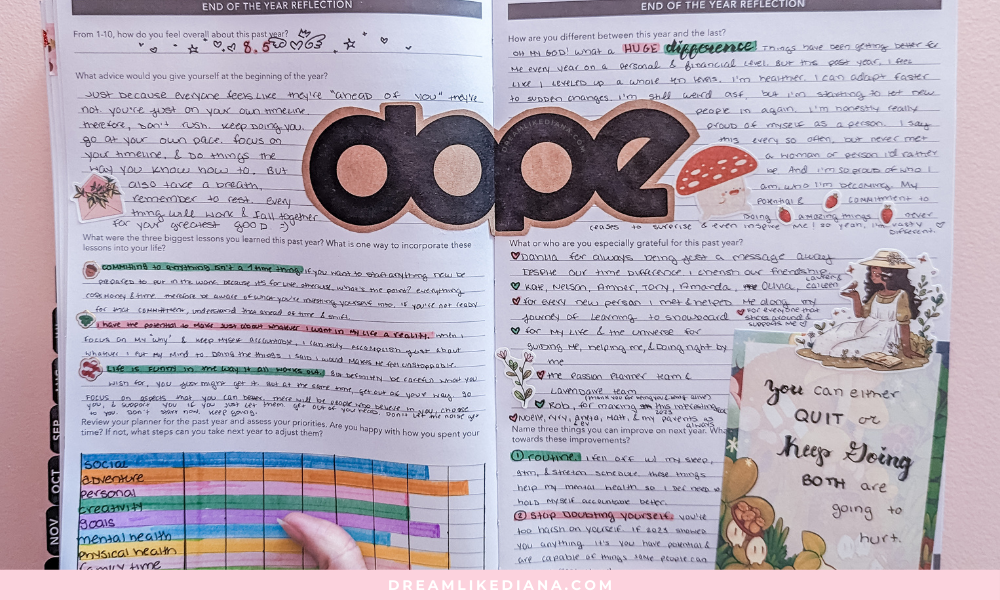 END OF THE YEAR REFLECTION
From 1-10, how do you feel overall about this past year?
8.5
What advice would you give yourself at the beginning of the year?
Just because everyone feels like they're "ahead of you" they're
not. you're just on your own timeline.
therefore, don't rush. keep doing you.
go at your own pace. focus on
your timeline, & do things the
way you know how to. But
also take a breath,
remember to rest. Every
thing will work & fall together
for your greatest good :)
What were the three biggest lessons you learned this past year? What is one way to incorporate these
lessons into your life?
committing to anything isn't a 1 time thing. if you want to start anything new be
prepared to put in the work. because it's for life otherwise, what's the point? everything
costs money & time therefore be aware of what you're investing yourself into. if you're not ready
for that commitment, understand that ahead of time & shift.
I have the potential to make just about whatever I want in my life a reality. when I
focus on my "why" & keep myself accountable, I can truly accomplish just about
whatever I put my mind to. Doing the things I said I would makes me feel unstoppable.
Life is funny in the way it all works out. But definitely be careful what you
wish for, you just might get it. But at the same time, get out of your way. So
focus on aspects that you can better, there will be people who believe in you, choose
you, & support you if you just let them. get out of your head. Don't let the noise get
to you. Don't start now, keep going.
Review your planner for the past year and assess your priorities. Are you happy with how you spent your
time? If not, what steps can you take next year to adjust them?
social
adventure
personal
creativity
goals
mental health
physical health
family time
SEP
OCT
NOV
dope
DREAMLIKEDIANA.COM
END OF THE YEAR REFLECTION
How are you different between this year and the last?
OH MY GOD! what a HUGE difference. Things have been getting better for
me every year on a personal & financial level. But this past year, I feel
like I leveled up a whole ten levels. I'm healthier. I can adapt faster
to sudden changes. I'm still weird asf, but I'm starting to let new
people in again. I'm honestly really
proud of myself as a person. I say
this every so often, but never met
a woman or person I'd rather
be. And I'm so proud of who I
am, who I'm becoming. My
potential & commitment to
doing amazing things never
ceases to surprise & even inspire me! So yeah, I'm vastly
different.
What or who are you especially grateful for this past year?
Dahlia for always being just a message away
despite our time difference I cherish our friendship
Kate, Nelson, Amber, Tory, Amanda, Olivia, Lauren, caileen
for every new person I met & helped me along my
journey of learning to snowboard
for everyone that
stuck around &
supports me
for my life & the universe for
guiding me, helping me, & doing right by
me
the passion planner team &
Lavendaire team
Rob, for making this interesting
Noelle, Kyry, Anya, Matt, & my parents as
always
Name three things you can improve on next year. Wha
towards these improvements?
1 routine. I fell off w/ my sleep,
gym, & stretch schedule. these things
help my mental health so I def need to
hold myself accountable better.
2 Stop doubting yourself. you're
too harsh on yourself. If 2021 showed
you anything it's you have potential &
are capable of things some people can
You can either
QUIT or
Keep Going
BOTH are
going to
hurt.
DREAMLIKEDIANA.COM